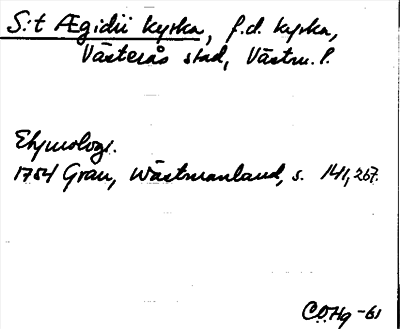 S:t Ægidii kyrka, f.d. kyrka,
Västerås stad, Västm. l.
Etymologi.
1754 Grau, Wästmanland, s. 141, 267.
C.O.Hg -61